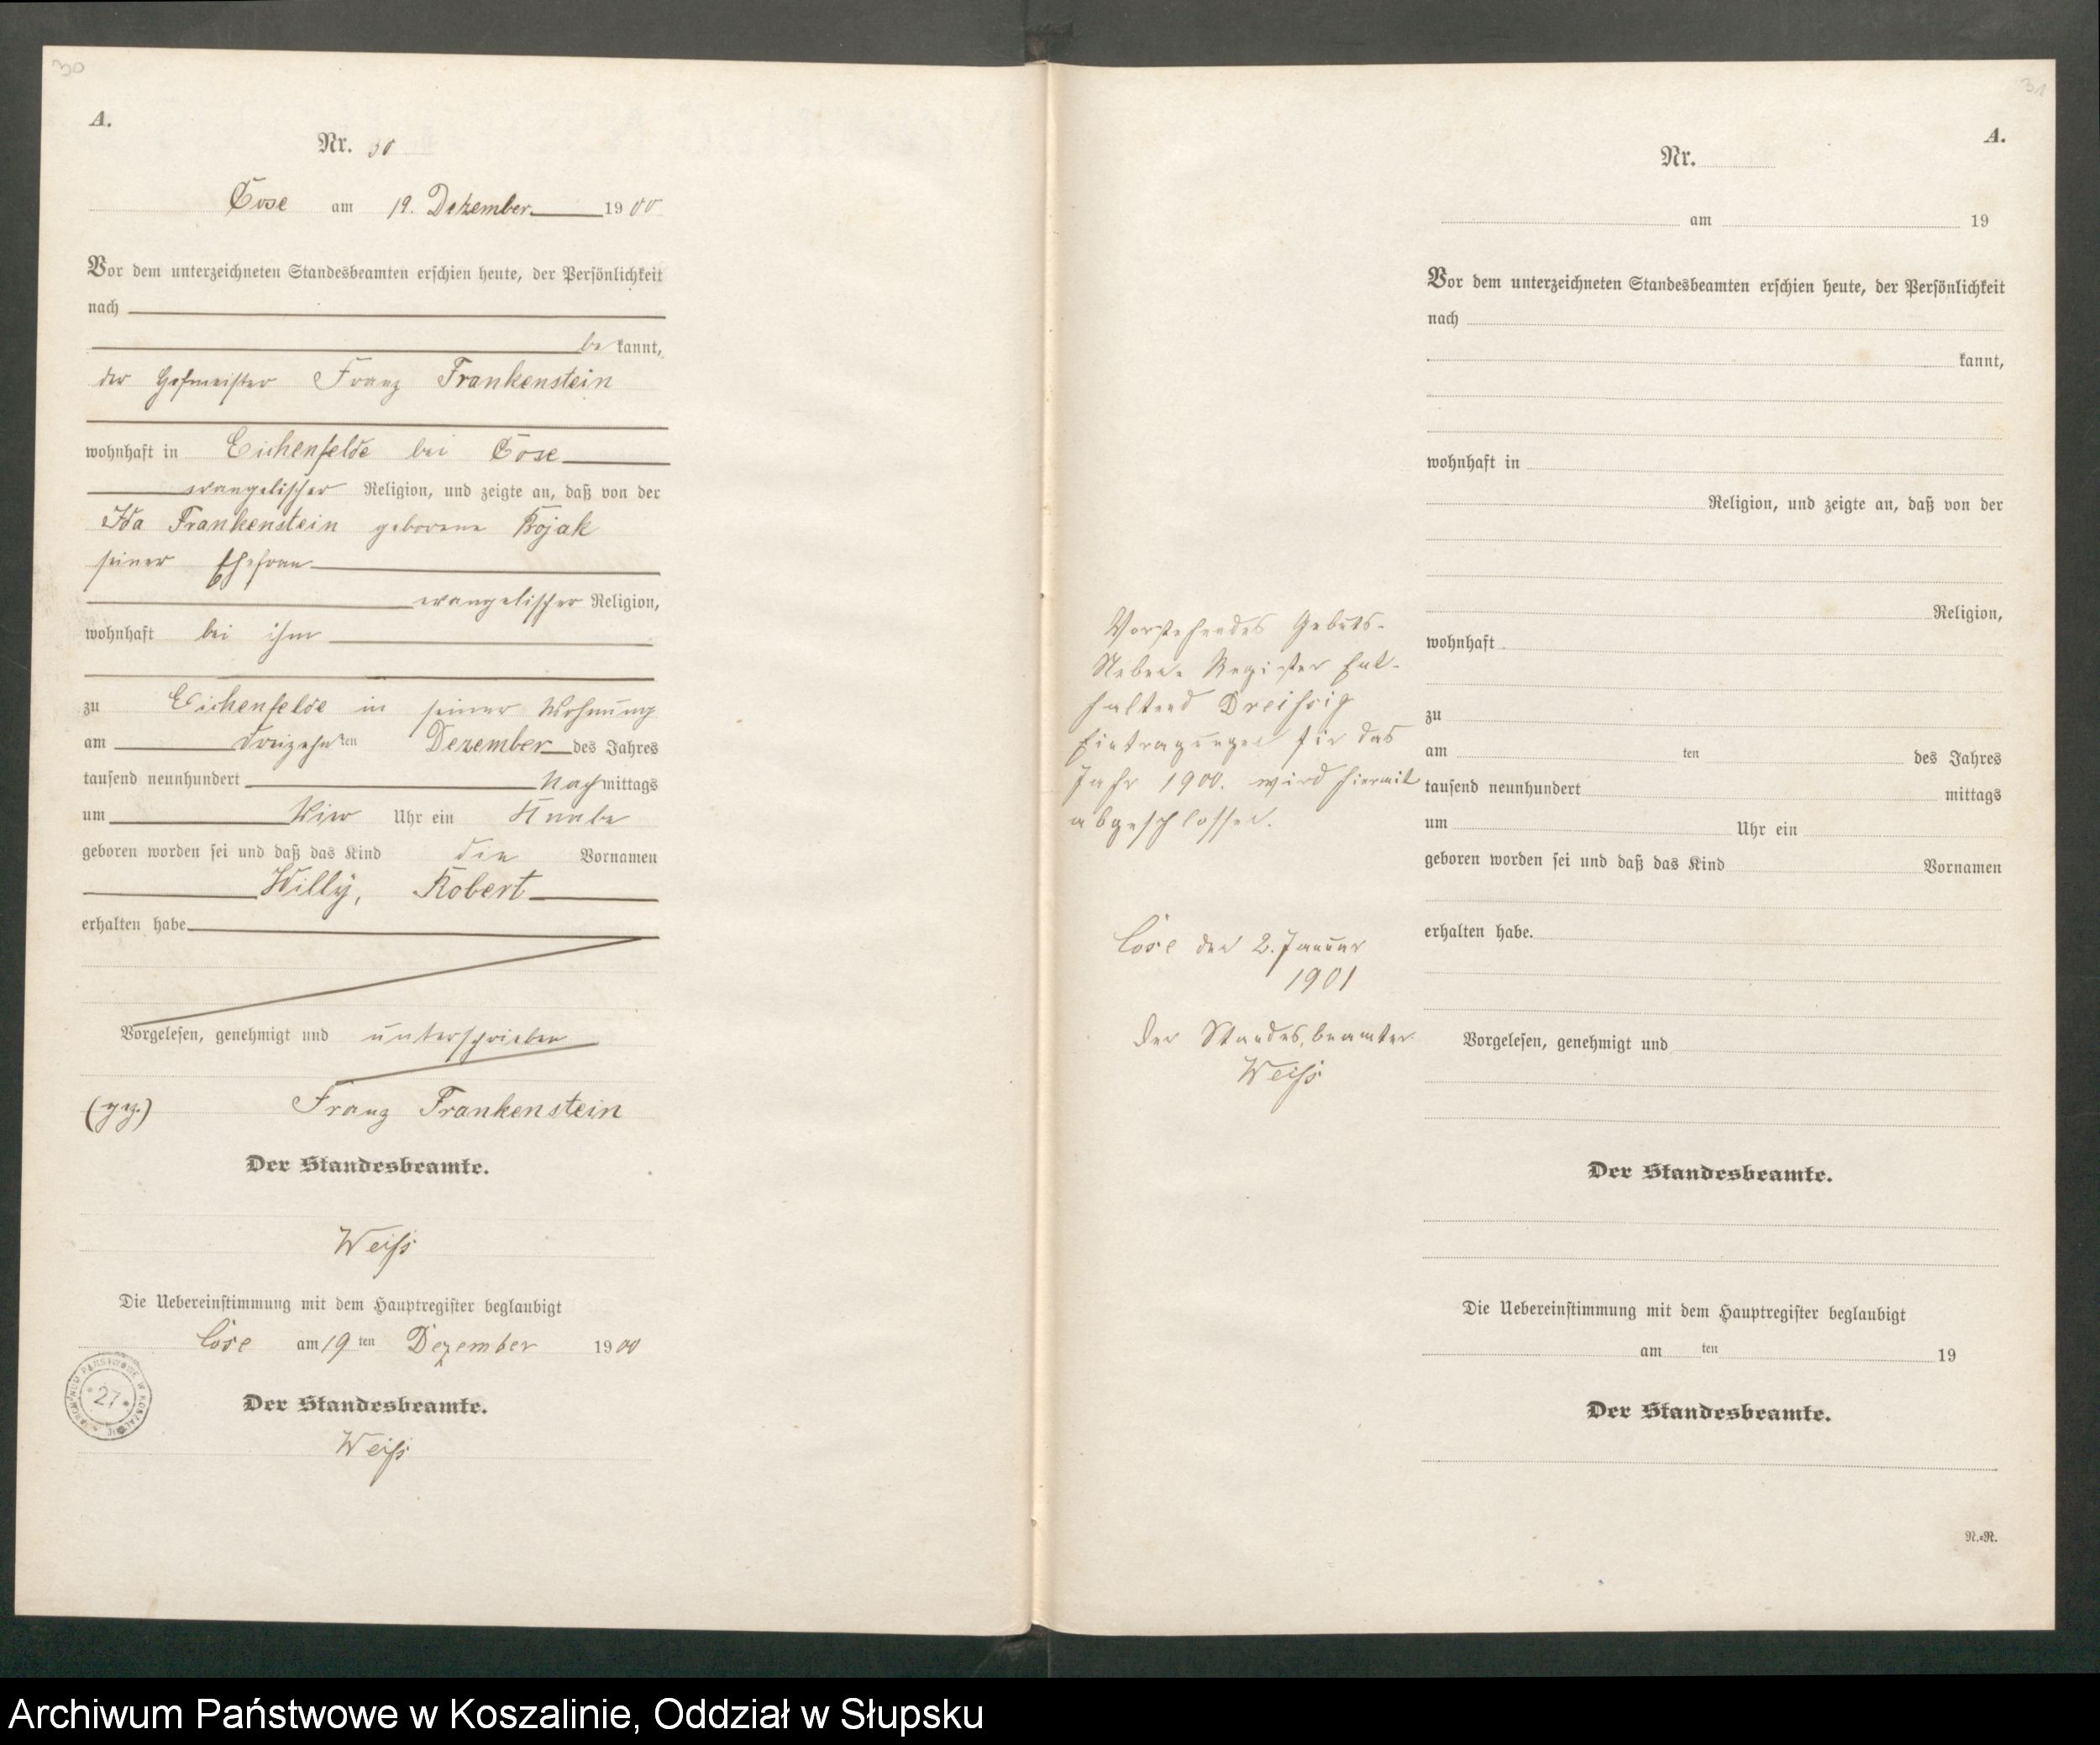 30
A.
Nr. 30
Cose am 19. Dezember 1900
Vor dem unterzeichneten Standesbeamten erschien heute, der Persönlichkeit
nach
be kannt,
der Hofmeister Franz Frankenstein
wohnhaft in Eichenfelde bei Cose
evangelischer Religion, und zeigte an, daß von der
Ida Frankenstein geborene Kojak
seiner Ehefrau
evangelischer Religion,
wohnhaft bei ihm
zu Eichenfelde in seiner Wohnung
am dreizehn ten Dezember des Jahres
tausend neunhundert Nach mittags
um vier Uhr ein Knabe
geboren worden sei und daß das Kind die Vornamen
Willy, Robert
erhalten habe
Vorgelesen, genehmigt und unterschrieben
(gez.) Franz Frankenstein
Der Standesbeamte.
Weiß
Die Uebereinstimmung mit dem Hauptregister beglaubigt
Cose am 19 ten Dezember 1900
Der Standesbeamte.
Weiß
ARCHIWUM PAŃSTWOWE W KOSZALINIE
*27*
Vorstehendes Gebuts-
Neben- Register Ent-
haltend Dreißig
Eintragungen für das
Jahr 1900. wird hiermit
abgeschlossen.
Cose den 2. Januar
1901
Der Standesbeamter
Weiß
31
A.
Nr.
am 19
Vor dem unterzeichneten Standesbeamten erschien heute, der Persönlichkeit
nach
kannt,
wohnhaft in
Religion, und zeigte an, daß von der
Religion,
wohnhaft
zu
am ten des Jahres
tausend neunhundert mittags
um Uhr ein
geboren worden sei und daß das Kind Vornamen
erhalten habe.
Vorgelesen, genehmigt und
Der Standesbeamte.
Die Uebereinstimmung mit dem Hauptregister beglaubigt
am ten 19
Der Standesbeamte.
N.=R.
Archiwum Państwowe w Koszalinie, Oddział w Słupsku